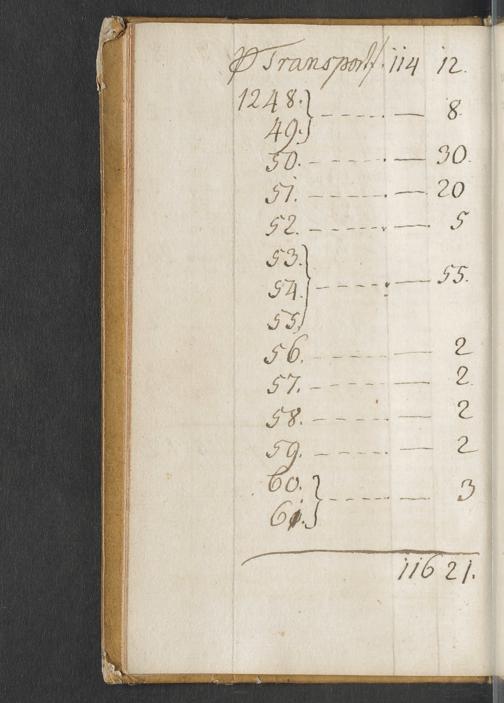 P Transport. 114 12.
1248. } — 8
49.
50. — 30.
51. — 20
52. — 5
53.
54. } — 55.
55.
56. — 2
57. — 2.
58. — 2
59. — 2
60. } — 3
61.
116 21.